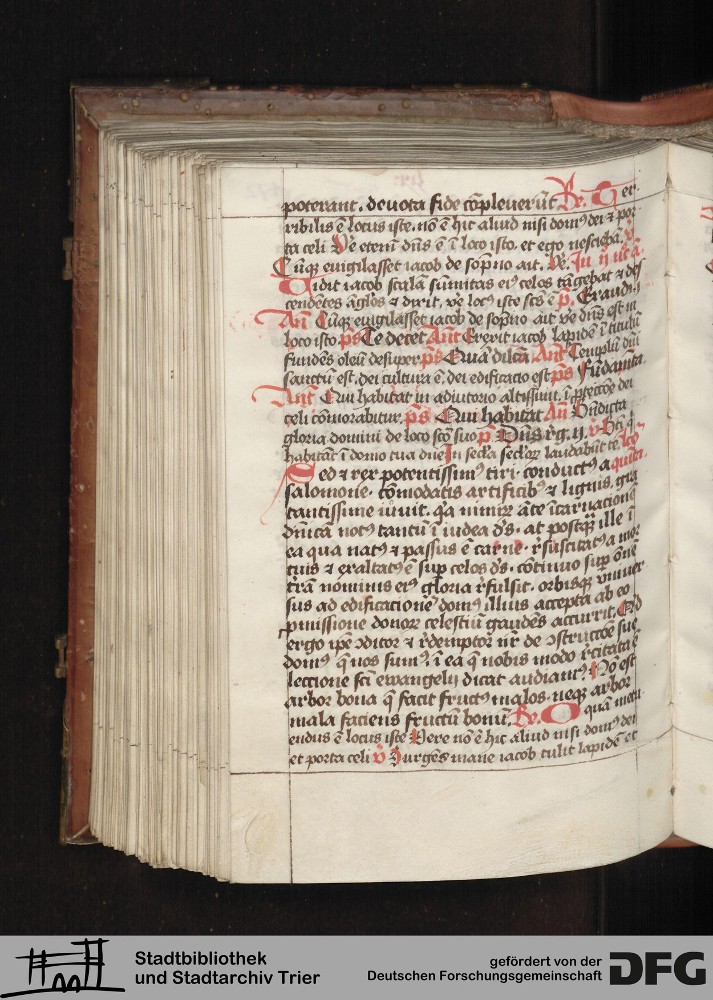 poterant. devota fide cōpleuerūt Re. Ter
ribilis ē locus iste. nō ē hic aliud nisi domꝰ dei ⁊ por
ta celi Ve etenī dn̄s ē ī loco isto. et ego nesciebā. V̄
Cūqꝫ euigilasset iacob de sopno ait. Ve.
Vidit iacob scalā sūmitas eiꝰ celos tāgebat ⁊ des
cendētes āglōs ⁊ dixit. ve locꝰ iste scs̄ ē p̄. Exaudi.
Añ Cūqꝫ euigilasset iacob de sopno ait ve dn̄s est in
loco isto ps Te decet Ant Erexit iacob lapidē ī titulū
fundēs oleū desuper ps Quā dilcā Ant Templū dn̄i
sanctū est. dei cultura ē. dei edificacio est ps Fūdamēta.
Ant Qui habitat in adiutorio altissimi. ī ꝓtectōe dei
celi cōmorabitur. ps Qui habitat Añ Bn̄dicta
gloria domini de loco sctō suo p̄ Dn̄s rg. ij. v̄ Bti q̄
habitāt ī domo tua dn̄e In secl̄a secl̄oꝝ laudabūt te. lco
Sed ⁊ rex potentissimꝰ tiri. conductꝰ a quīta.
salomone. cōmodatis artificibꝰ ⁊ lignis. gra
tantissime iuuit. qa nimirꝝ āte īcarnacionē
dn̄icā notꝰ tantū ī iudea ds̄. at postqꝫ ille ī
ea qua natꝰ ⁊ passus ē carne. rsuscitatꝰ a mor
tuis ⁊ exaltatꝰ ē suꝑ celos ds̄. cōtinuo suꝑ ōnē
t̄rā nominis eiꝰ gloria r̄fulsit. orbisqꝫ vniuer
sus ad edificationē domꝰ illius accepta ab eo
ꝑmissione donoꝝ celestiū gaudēs accurrit. Qd
ergo ipē ꝯditor ⁊ r̄demptor nr̄ de ꝯstructōe sue
domꝰ q̄ nos sumꝰ. ī ea q̄ nobis modo r̄citata ē
leccione scī ewangelij dicat audiamꝰ. Nō est
arbor bona q̄ facit fructꝰ malos. neqꝫ arbor
mala faciens fructū bonū. Re. O quā metu
endus ē locus iste Vere nō ē hic aliud nisi domꝰ dei
et porta celi v̄ Surgēs mane iacob tulit lapidē et
Stadtbibliothek
und Stadtarchiv Trier
gefördert von der
Deutschen Forschungsgemeinschaft DFG